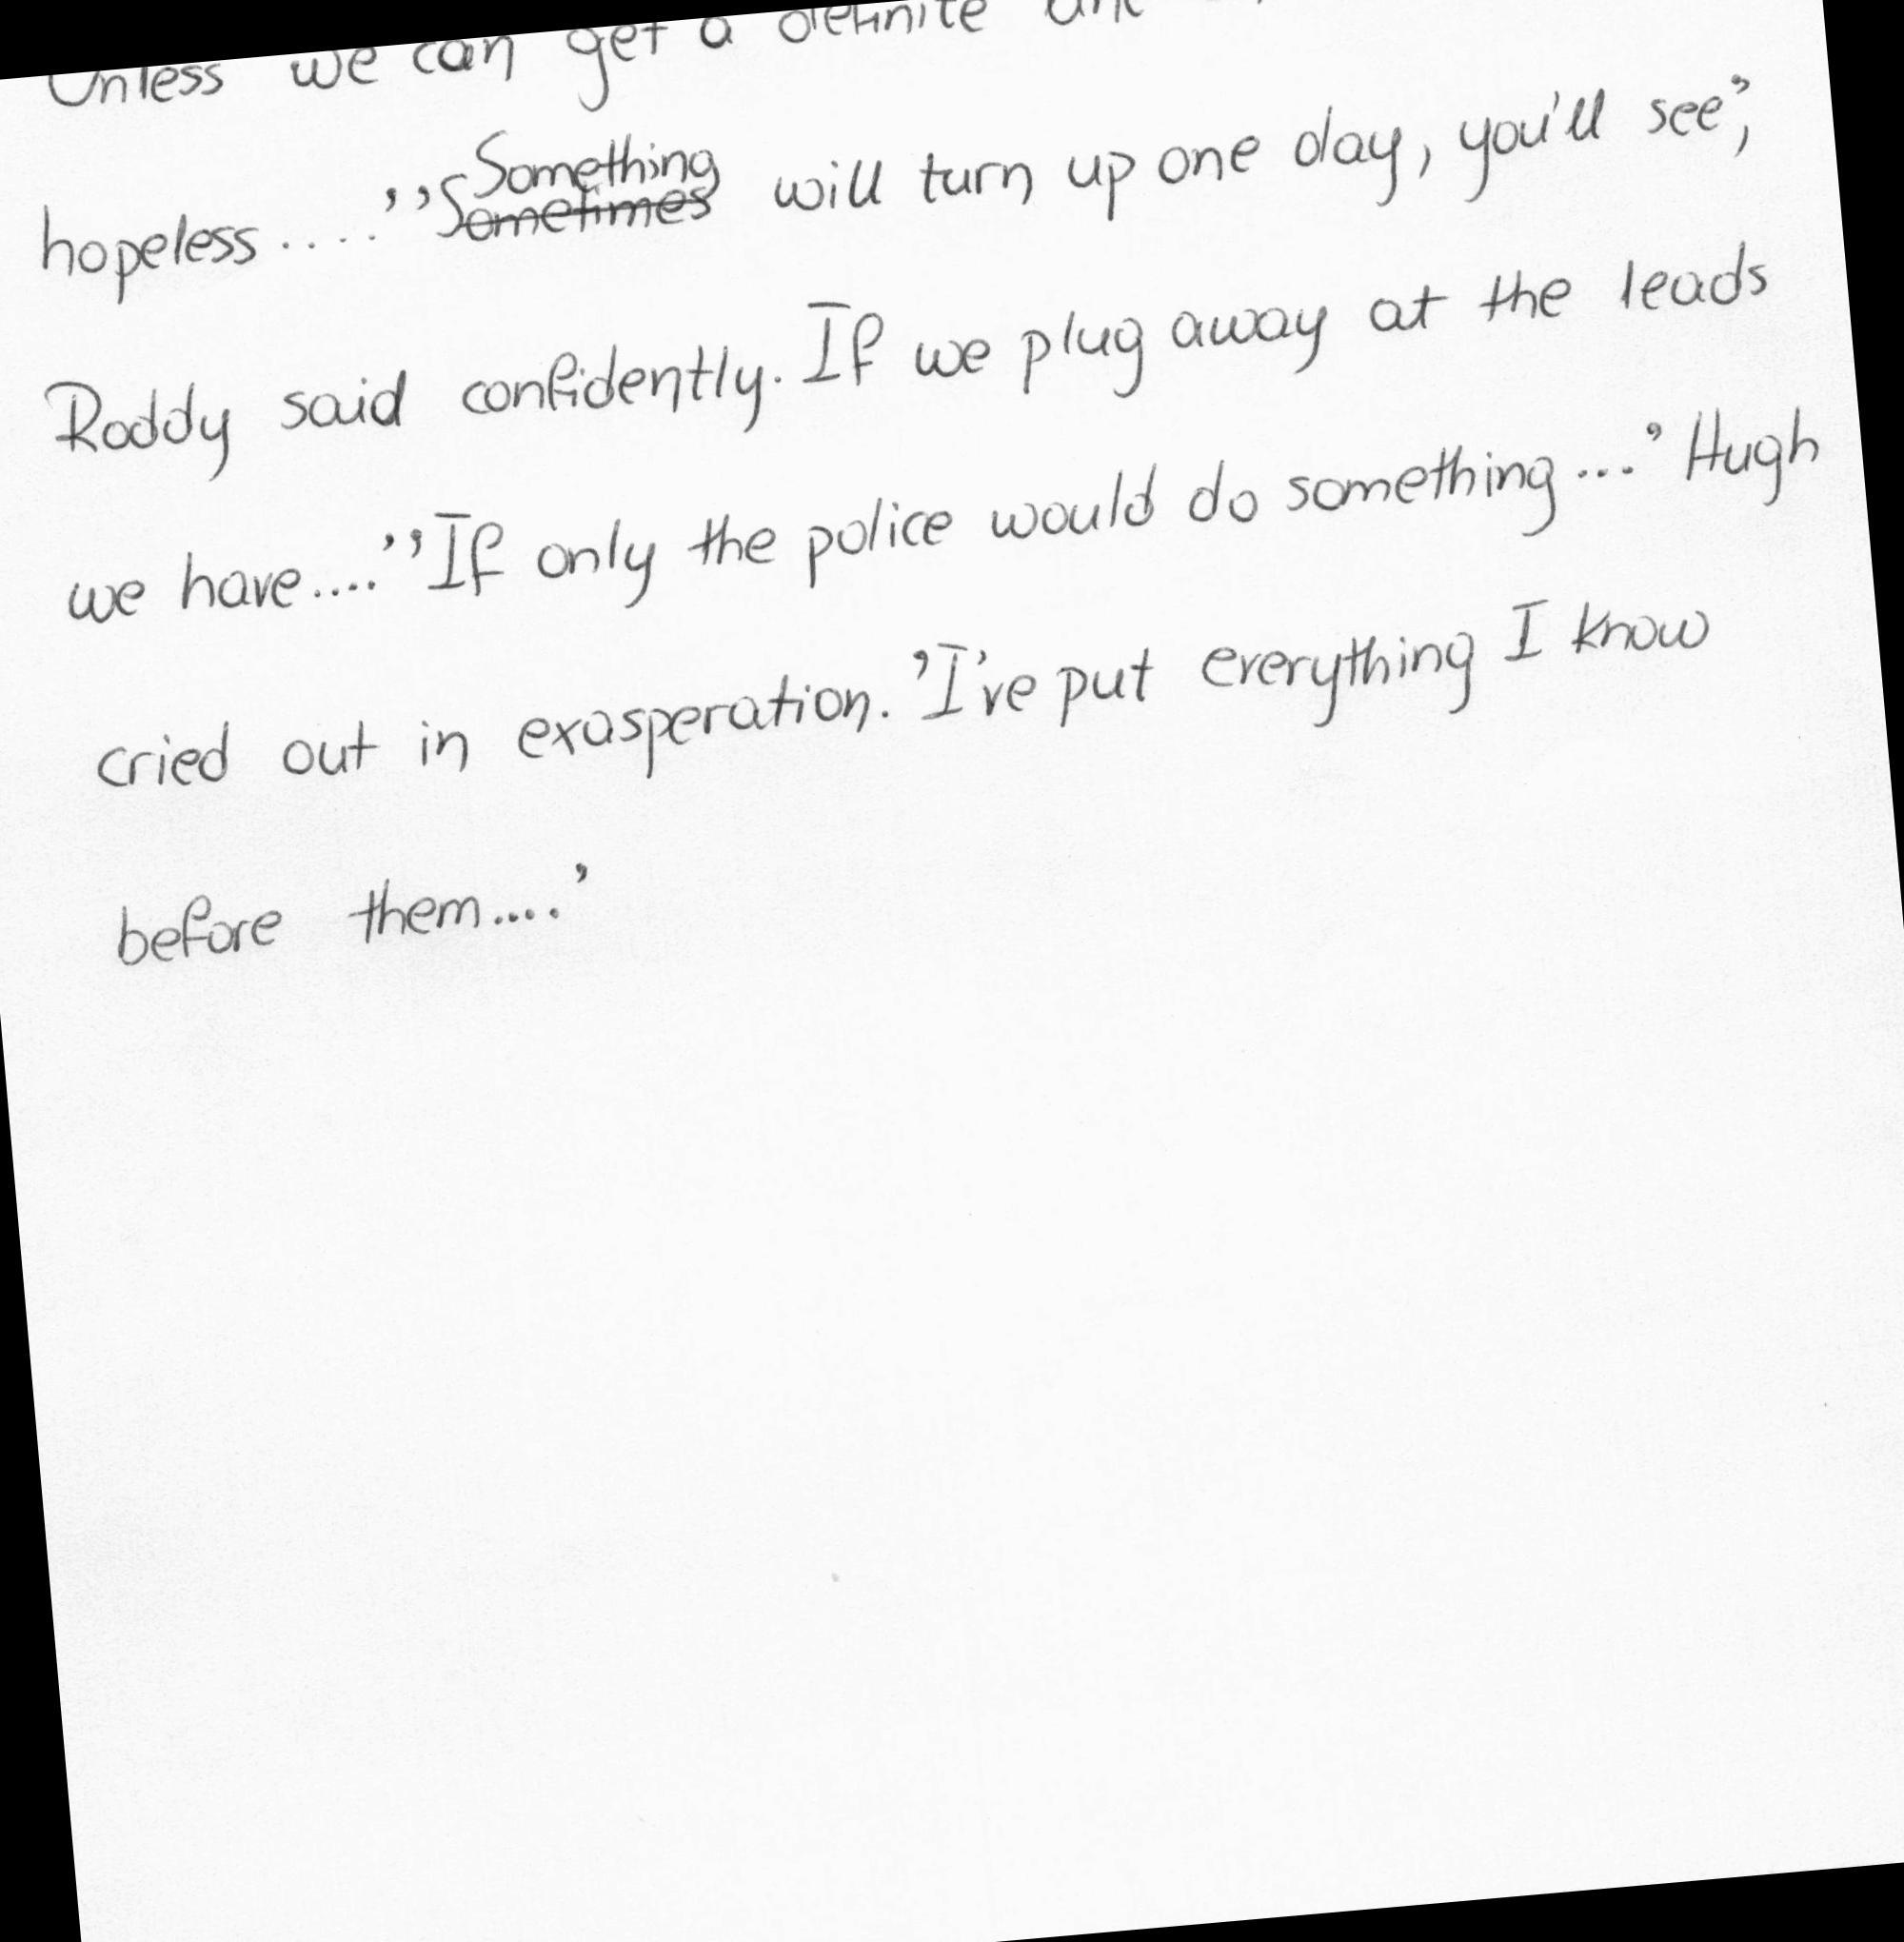 Unless we can get a definite
hopeless....''Something will turn up one day, you'll see',
Roddy said confidently. If we plug away at the leads
we have....''If only the police would do something...' Hugh
cried out in exasperation. 'I've put everything I know
before them....'